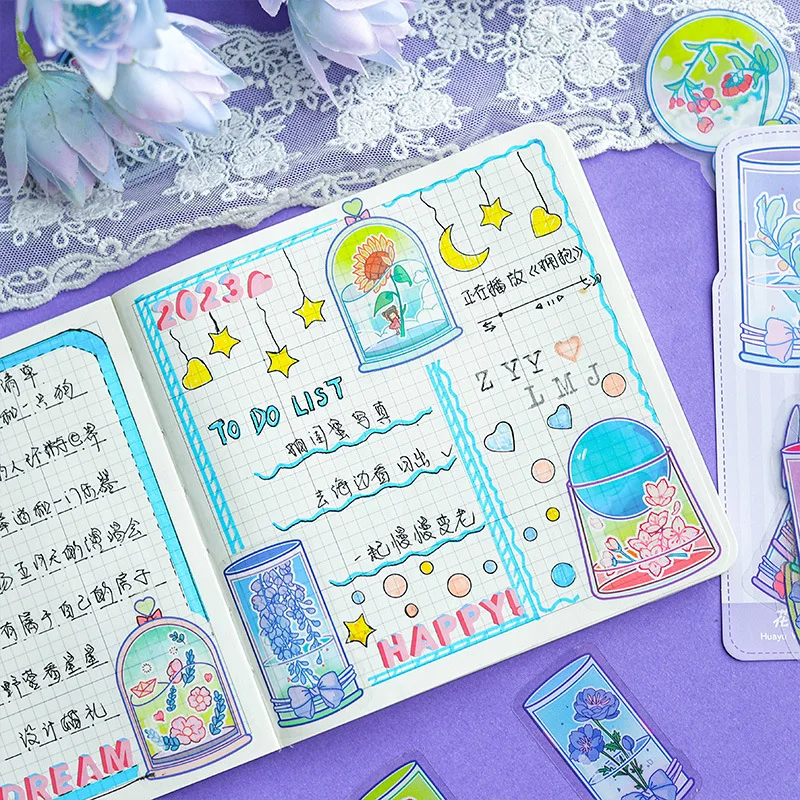 清单
一只狗
的人环游世界
门乐器
五月天的演唱会
有属于自己的房子
野营看星星
设计婚礼
DREAM
2023
TO DO LIST
拍闺蜜写真
去海边看日出
一起慢慢变老
HAPPY!
正在播放《拥抱》
Z Y Y
L M J
花
Huayu